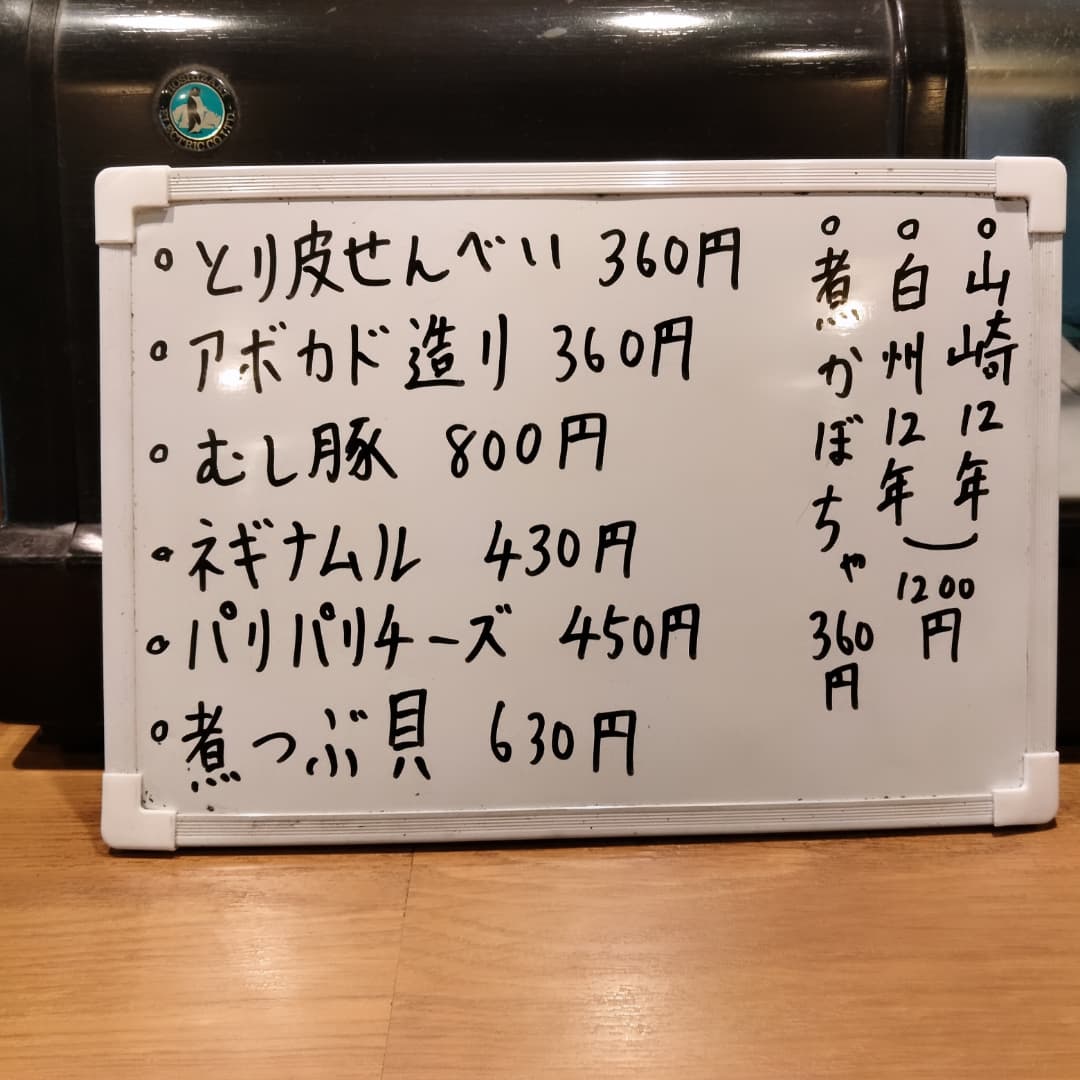 HOSHIZAKI ELECTRIC CO.LTD.
。とり皮せんべい 360円
。アボカド造り 360円
。むし豚 800円
。ネギナムル 430円
。パリパリチーズ 450円
。煮つぶ貝 630円
。山崎12年
。白州12年
1200円
。煮かぼちゃ 360円